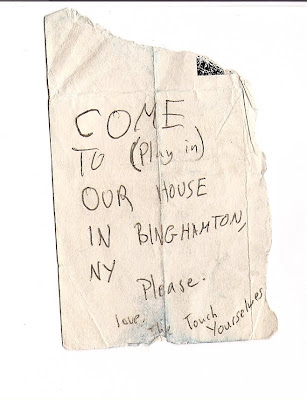 COME
TO (Play in)
OUR HOUSE
IN BINGHAMTON,
NY Please.
love, The Touch Yourselves